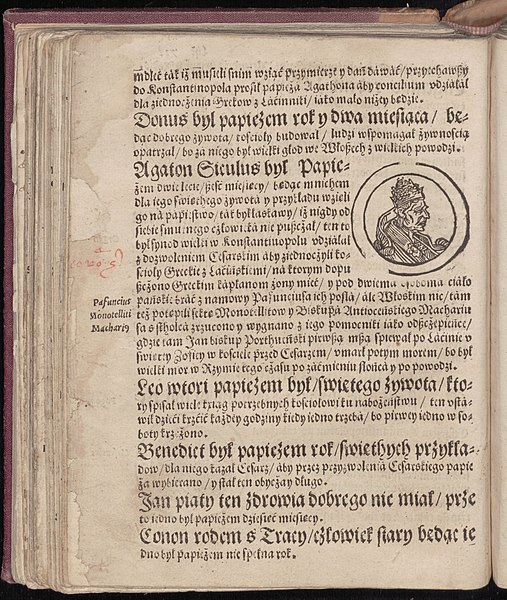 mdlić ták iż muśieli snim wziąć przymierze y dań dáwáć / przyiechawßy
do Konstantinopolá prośił papieżá Agathoná áby concilium vdziáłał
dla ziednoczenia Grekow z Łáćinniki / iáko máło niżey będzie.
Donus był papieżem rok y dwá mieśiącá / bę-
dąc dobrego żywotá / kośćioły budował / ludzi wspomagał żywnośćią
opátrzał / bo zá niego był wielki głod we Włoßech z wielkich powodzi.
Agaton Siculus był Papie-
żem dwie lecie / ßeść mieśięcy / będąc mnichem
dla iego święthego żywotá y przykłádu wzięli
go ná papiestwo / ták był łáskáwy / iż nigdy od
śiebie smutnego człowieká nie puśćił / ten to
był synod wielki w Konstantinopolu vdziáłał
z dozwolenim Cesárskim áby ziednoczyli ko-
śćioły Greckie z Łáćińskiemi / ná ktorym dopu
ßczono Greckim kápłanom żony mieć / y pod dwiemá osobomá ciáło
páńskie bráć z namowy Páfunciusá ich posłá / ále Włoskim nie / tám
też potępili sektę Monotellitow y Biskupá Antioceńskiego Macháriu
sá s stholcá zrzucono y wygnano z iego pomocniki iáko odßczepieńce /
gdzie tám Jan biskup Porthueński pierwßą mßą śpiewał po Łáćinie v
świętey Zofiiey w kośćiele przed Cesárzem / vmárł potym morem / bo był
wielki mor w Rzymie tego czásu po záćmieniu słońcá y po powodzi.
Leo wtori papieżem był / świętego żywotá / kto-
ry spisał wiele kśiąg potrzebnych kośćiołowi ku nabożeństwu / ten vstá-
wił dzieći krzćić káżdey godziny kiedy iedno trzebá / bo pirwey iedno w so-
boty krzczono.
Benedict był papieżem rok / świethych przykłá-
dow / dla niego kazał Cesárz / áby przez przyzwolenia Cesárskiego papie
żá wybierano / y stał ten obyczay długo.
Jan piąty ten zdrowia dobrego nie miał / prze
to iedno był papieżem dzieśięć mieśięcy.
Conon rodem s Tracy / człowiek stáry będąc ie
dno był papieżem nie spełná rok.
Pafuncius
Monotelliti
Macharius